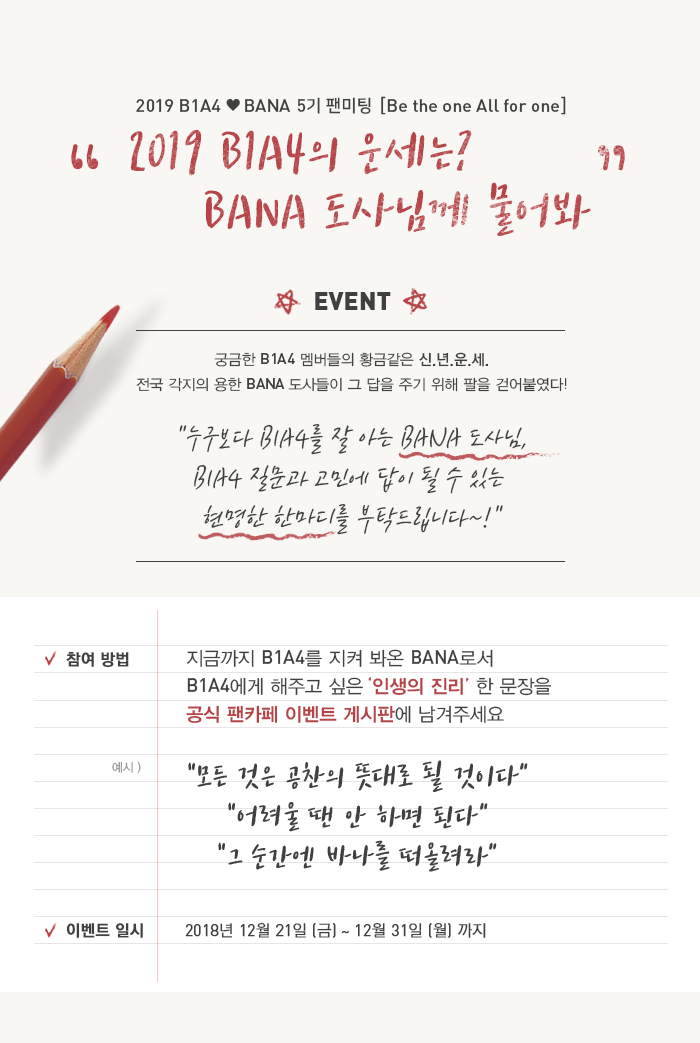 2019 B1A4 ♥ BANA 5기 팬미팅 [Be the one All for one]
“ 2019 B1A4의 운세는? ”
BANA 도사님께 물어봐
EVENT
궁금한 B1A4 멤버들의 황금같은 신.년.운.세.
전국 각지의 용한 BANA 도사들이 그 답을 주기 위해 팔을 걷어붙였다!
"누구보다 B1A4를 잘 아는 BANA 도사님,
B1A4 질문과 고민에 답이 될 수 있는
현명한 한마디를 부탁드립니다~!"
참여 방법
지금까지 B1A4를 지켜 봐온 BANA로서
B1A4에게 해주고 싶은 ‘인생의 진리’ 한 문장을
공식 팬카페 이벤트 게시판에 남겨주세요
예시 )
"모든 것은 공찬의 뜻대로 될 것이다"
"어려울 땐 안 하면 된다"
"그 순간엔 바나를 떠올려라"
이벤트 일시
2018년 12월 21일 (금) ~ 12월 31일 (월) 까지